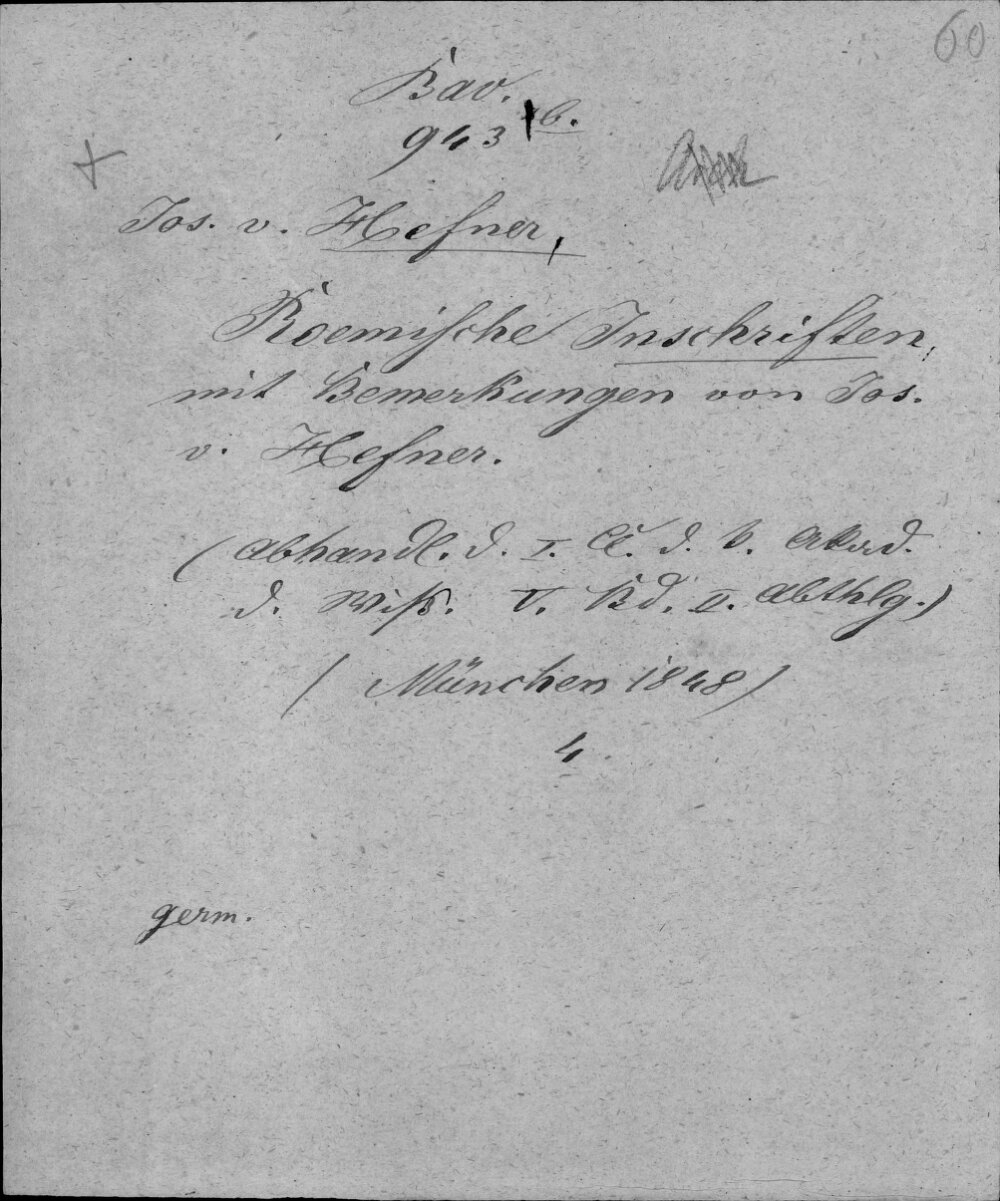 60
Bav.
943 b.
Jos. v. Hefner,
Roemische Inschriften,
mit Bemerkungen von Jos.
v. Hefner.
(Abhandl. d. I. Cl. d. k. Akad.
d. Wiß. V. Bd. II. Abthlg.)
(München 1848)
4
germ.